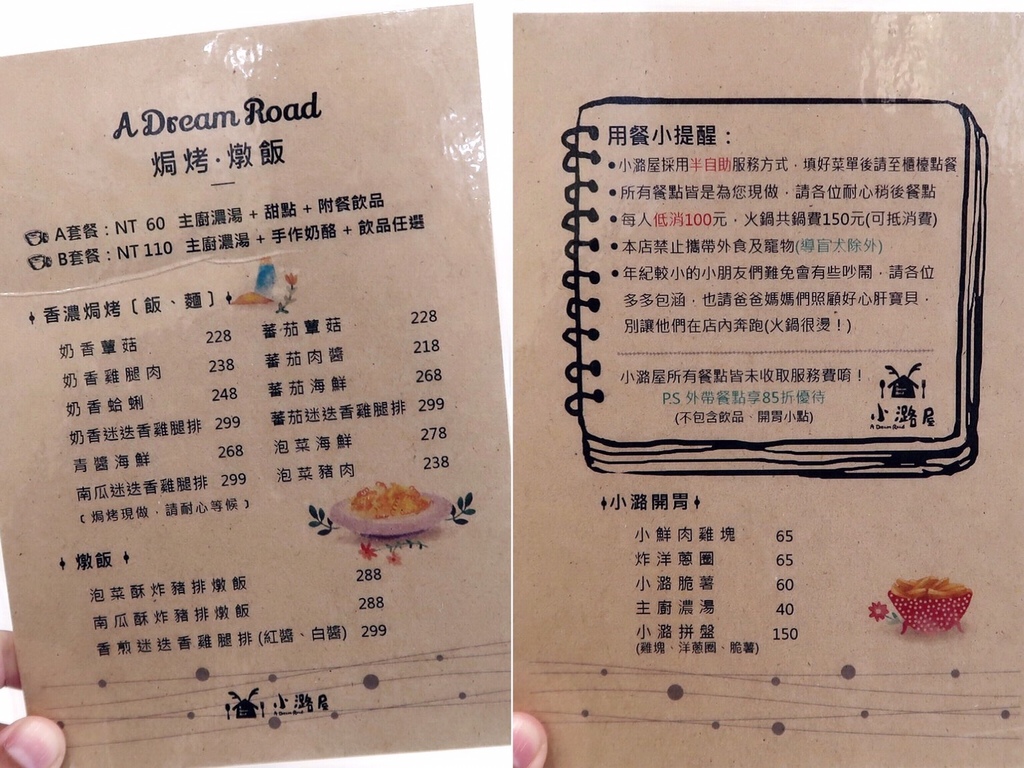 A Dream Road
焗烤·燉飯
A套餐：NT 60 主廚濃湯 + 甜點 + 附餐飲品
B套餐：NT 110 主廚濃湯 + 手作奶酪 + 飲品任選
香濃焗烤〔飯、麵〕
奶香蕈菇 228
奶香雞腿肉 238
奶香蛤蜊 248
奶香迷迭香雞腿排 299
青醬海鮮 268
南瓜迷迭香雞腿排 299
（焗烤現做，請耐心等候）
蕃茄蕈菇 228
蕃茄肉醬 218
蕃茄海鮮 268
蕃茄迷迭香雞腿排 299
泡菜海鮮 278
泡菜豬肉 238
燉飯
泡菜酥炸豬排燉飯 288
南瓜酥炸豬排燉飯 288
香煎迷迭香雞腿排(紅醬、白醬) 299
小潞屋
A Dream Road
用餐小提醒：
•小潞屋採用半自助服務方式，填好菜單後請至櫃檯點餐
•所有餐點皆是為您現做，請各位耐心稍後餐點
•每人低消100元，火鍋共鍋費150元(可抵消費)
•本店禁止攜帶外食及寵物(導盲犬除外)
•年紀較小的小朋友們難免會有些吵鬧，請各位
多多包涵，也請爸爸媽媽們照顧好心肝寶貝，
別讓他們在店內奔跑(火鍋很燙！)
小潞屋所有餐點皆未收取服務費唷！
P.S 外帶餐點享85折優待
(不包含飲品、開胃小點)
小潞屋
A Dream Road
小潞開胃
小鮮肉雞塊 65
炸洋蔥圈 65
小潞脆薯 60
主廚濃湯 40
小潞拼盤 150
(雞塊、洋蔥圈、脆薯)